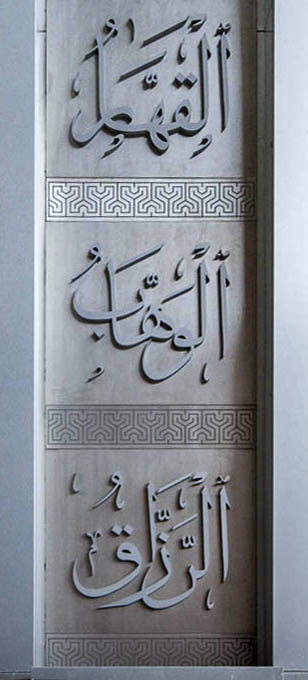 ٱلْقَهَّارُ
ٱلْوَهَّابُ
ٱلرَّزَّاقُ